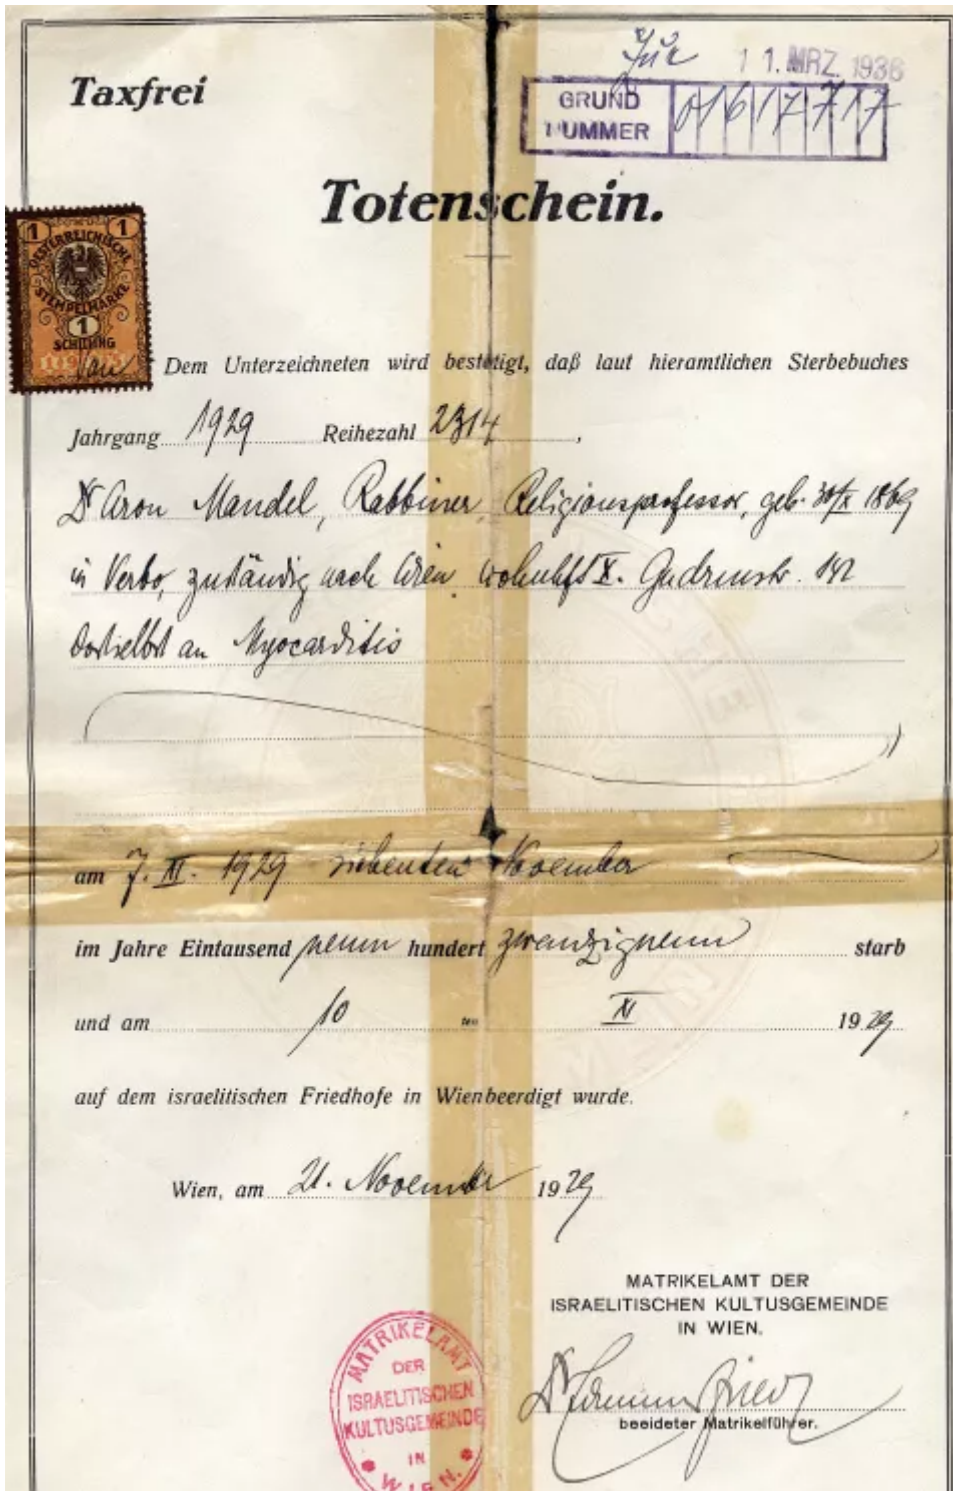 11. MRZ. 1936
Taxfrei
GRUND
NUMMER
Totenschein.
1 1
OESTERREICHISCHE
STEMPELMARKE
1
SCHILLING
Dem Unterzeichneten wird bestätigt, daß laut hieramtlichen Sterbebuches
Jahrgang 1929 Reihezahl 2314,
Dr Aron Mandel, Rabbiner, Religionsprofessor, geb. 30/X 1869
in Verbo, zuständig nach Wien, wohnhft X. Gudrunstr.
dortselbst an Myocarditis
am 7. XI. 1929 siebenten November
im Jahre Eintausend neun hundert zwanzigneun starb
und am 10 ten XI 1929
auf dem israelitischen Friedhofe in Wien beerdigt wurde.
Wien, am 21. November 1929
MATRIKELAMT DER
ISRAELITISCHEN KULTUSGEMEINDE
IN WIEN.
Dr
beeideter Matrikelführer.
MATRIKELAMT
DER
ISRAELITISCHEN
KULTUSGEMEINDE
IN
WIEN.